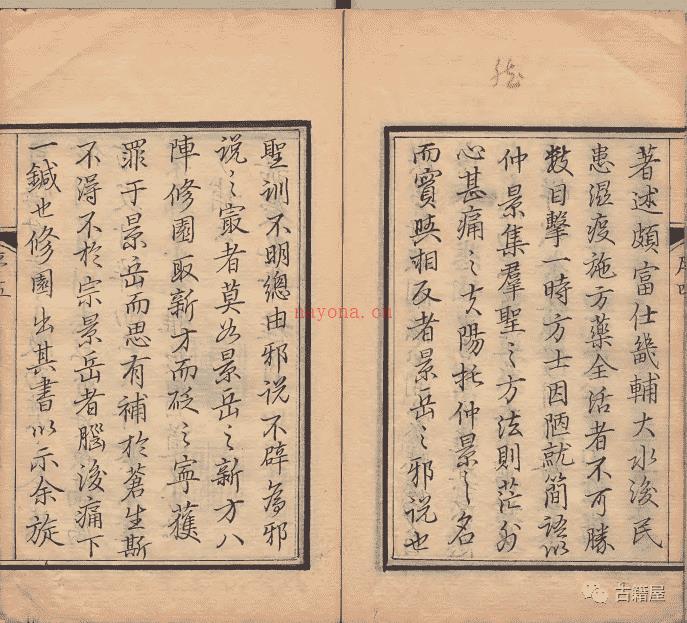 著述頗富仕畿輔大水後民
患溼疫施方藥全活者不可勝
數目擊一時方士因陋就簡語以
仲景集羣聖之方法則茫如
心甚痛之夫陽托仲景之名
而實與相反者景岳之邪說也
聖訓不明總由邪說不辟為邪
說之最者莫如景岳之新方八
陣修園取新方而砭之寧獲
罪于景岳而思有補於蒼生斯
不得不於宗景岳者腦後痛下
一鍼也修園出其書以示余旋
nayona.cn
古籍屋